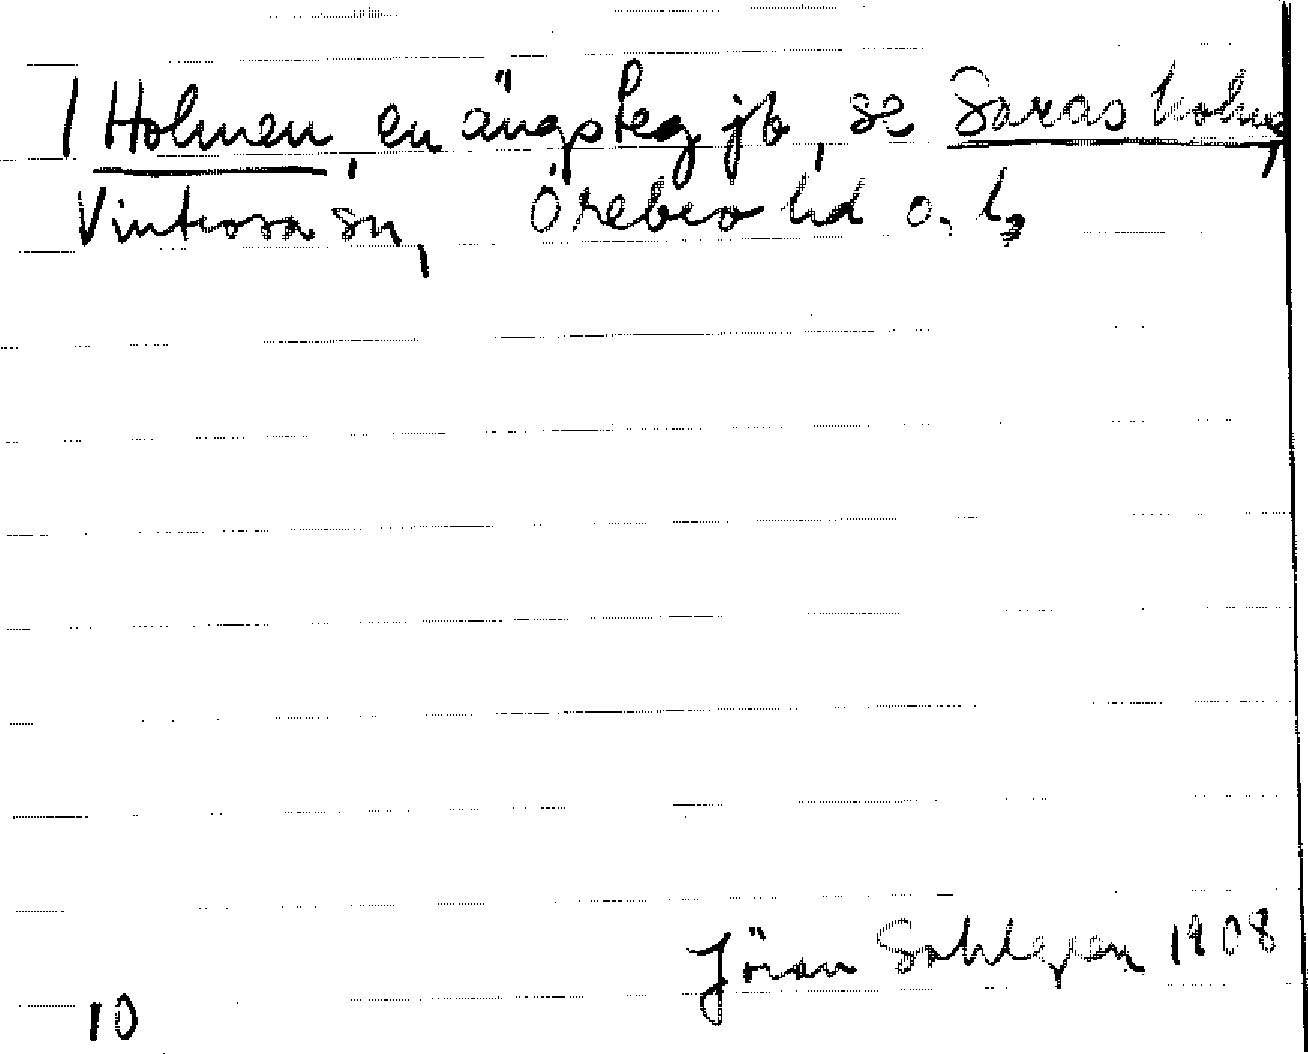 Holmen, en ängsteg jb, se Saras holme,
Vintrosa sn, Örebro hd o. l.
Jöran Sahlgren 1908
10